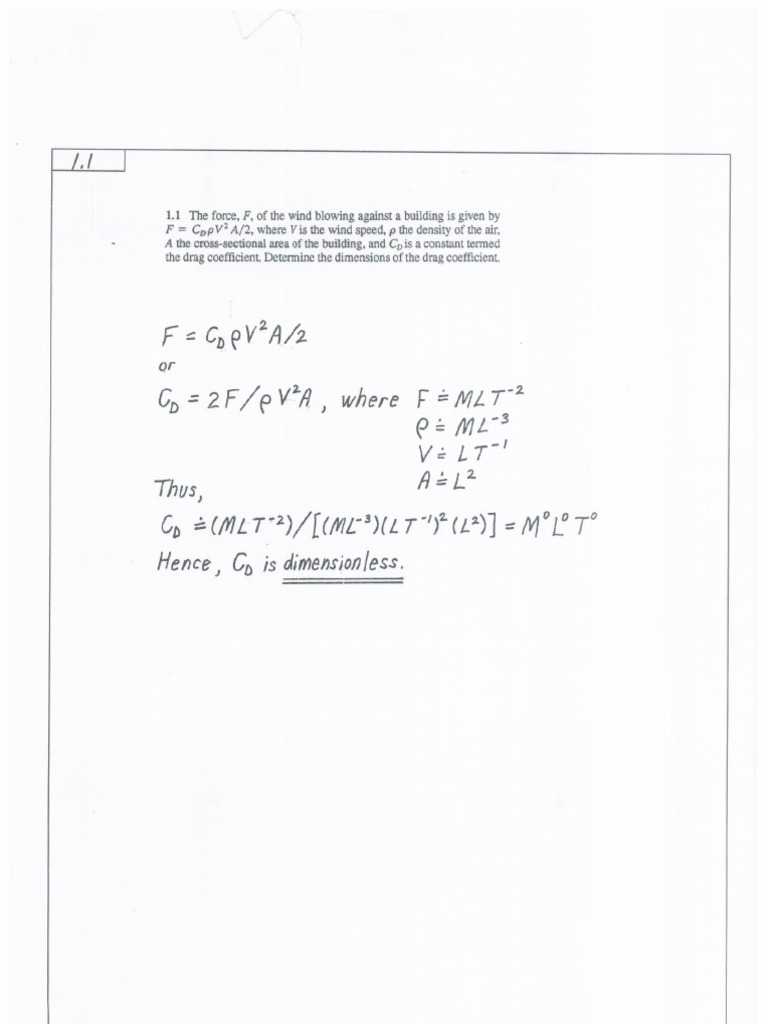 1.1
1.1 The force, F, of the wind blowing against a building is given by
F = C_DρV²A/2, where V is the wind speed, ρ the density of the air,
A the cross-sectional area of the building, and C_D is a constant termed
the drag coefficient. Determine the dimensions of the drag coefficient.
F = C_DρV²A/2
or
C_D = 2F/ρV²A, where F ≐ MLT⁻²
ρ ≐ ML⁻³
V ≐ LT⁻¹
A ≐ L²
Thus,
C_D ≐ (MLT⁻²)/[(ML⁻³)(LT⁻¹)²(L²)] = M⁰L⁰T⁰
Hence, C_D is dimensionless.